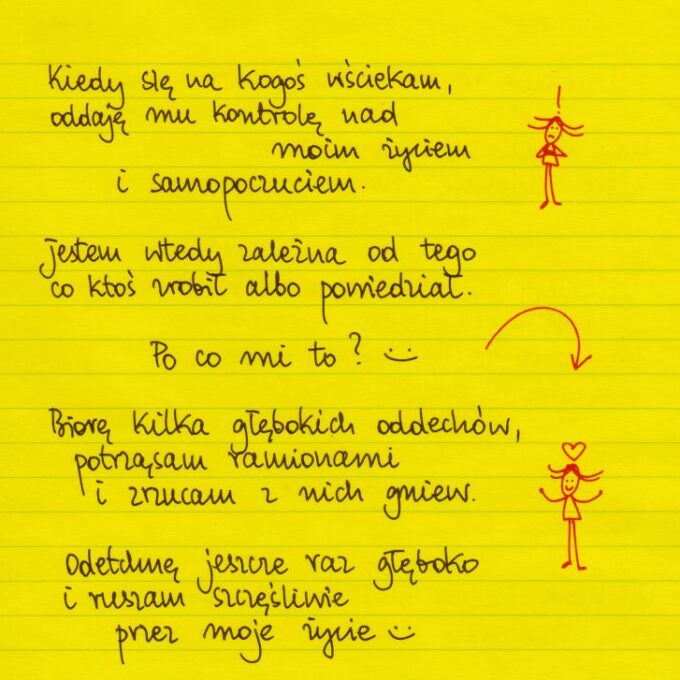 Kiedy się na kogoś wściekam,
oddaję mu kontrolę nad
moim życiem
i samopoczuciem.
Jestem wtedy zależna od tego
co ktoś zrobił albo powiedział.
Po co mi to? :)
Biorę kilka głębokich oddechów,
potrząsam ramionami
i zrzucam z nich gniew.
Odetchnę jeszcze raz głęboko
i ruszam szczęśliwie
przez moje życie :)